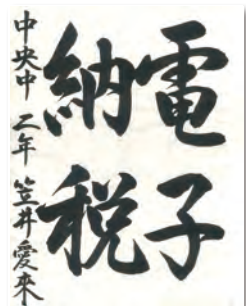 電子
納税
中央中 二年 笠井愛來